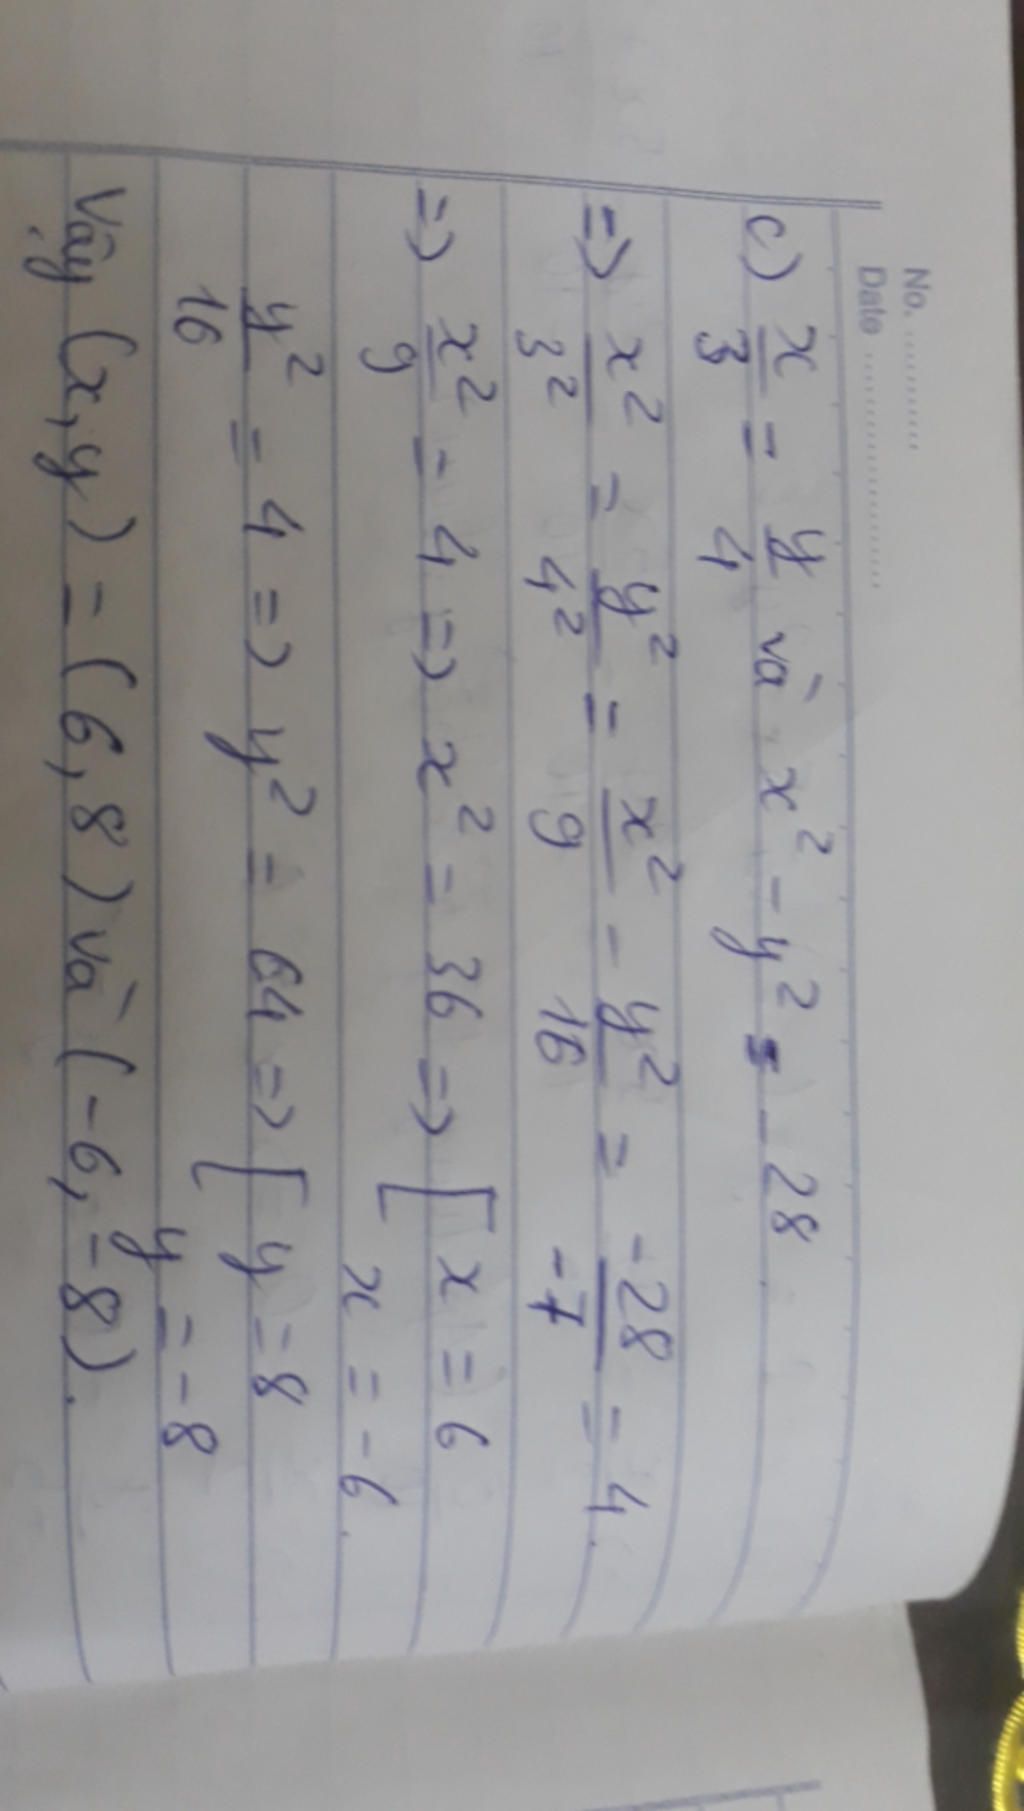 No. ............
Date .....................
c) x/3 = y/4 và x² - y² = - 28
=> x²/3² = y²/4² = x²/9 - y²/16 = -28/-7 = 4.
=> x²/9 = 4 => x² = 36 => [ x = 6
x = -6.
y²/16 = 4 => y² = 64 => [ y = 8
y = -8
Vậy (x,y) = (6,8) và (-6,-8).